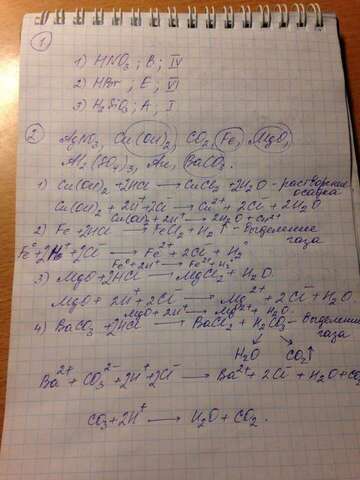 1.
1) HNO₃ ; B ; IV
2) HBr ; E ; VI
3) H₂SiO₃ ; A ; I
2. AgNO₃, Cu(OH)₂, CO₂, Fe, MgO,
Al₂(SO₄)₃, Au, BaCO₃.
1) Cu(OH)₂ + 2HCl → CuCl₂ + 2H₂O - растворение
осадка
Cu(OH)₂ + 2H⁺ + 2Cl⁻ → Cu²⁺ + 2Cl⁻ + 2H₂O
Cu(OH)₂ + 2H⁺ → 2H₂O + Cu²⁺
2) Fe + 2HCl → FeCl₂ + H₂↑ - выделение
газа
Fe⁰ + 2H⁺ + 2Cl⁻ → Fe²⁺ + 2Cl⁻ + H₂⁰
Fe⁰ + 2H⁺ → Fe²⁺ + H₂⁰
3) MgO + 2HCl → MgCl₂ + H₂O.
MgO + 2H⁺ + 2Cl⁻ → Mg²⁺ + 2Cl⁻ + H₂O
MgO + 2H⁺ → Mg²⁺ + H₂O.
4) BaCO₃ + 2HCl → BaCl₂ + H₂CO₃ - выделение
газа
H₂O CO₂↑
Ba²⁺ + CO₃²⁻ + 2H⁺ + 2Cl⁻ → Ba²⁺ + 2Cl⁻ + H₂O + CO₂
CO₃ + 2H⁺ → H₂O + CO₂.